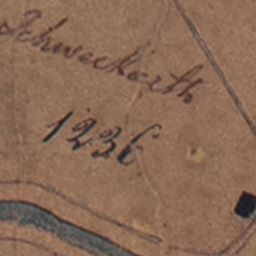 Schweckarth
1236.